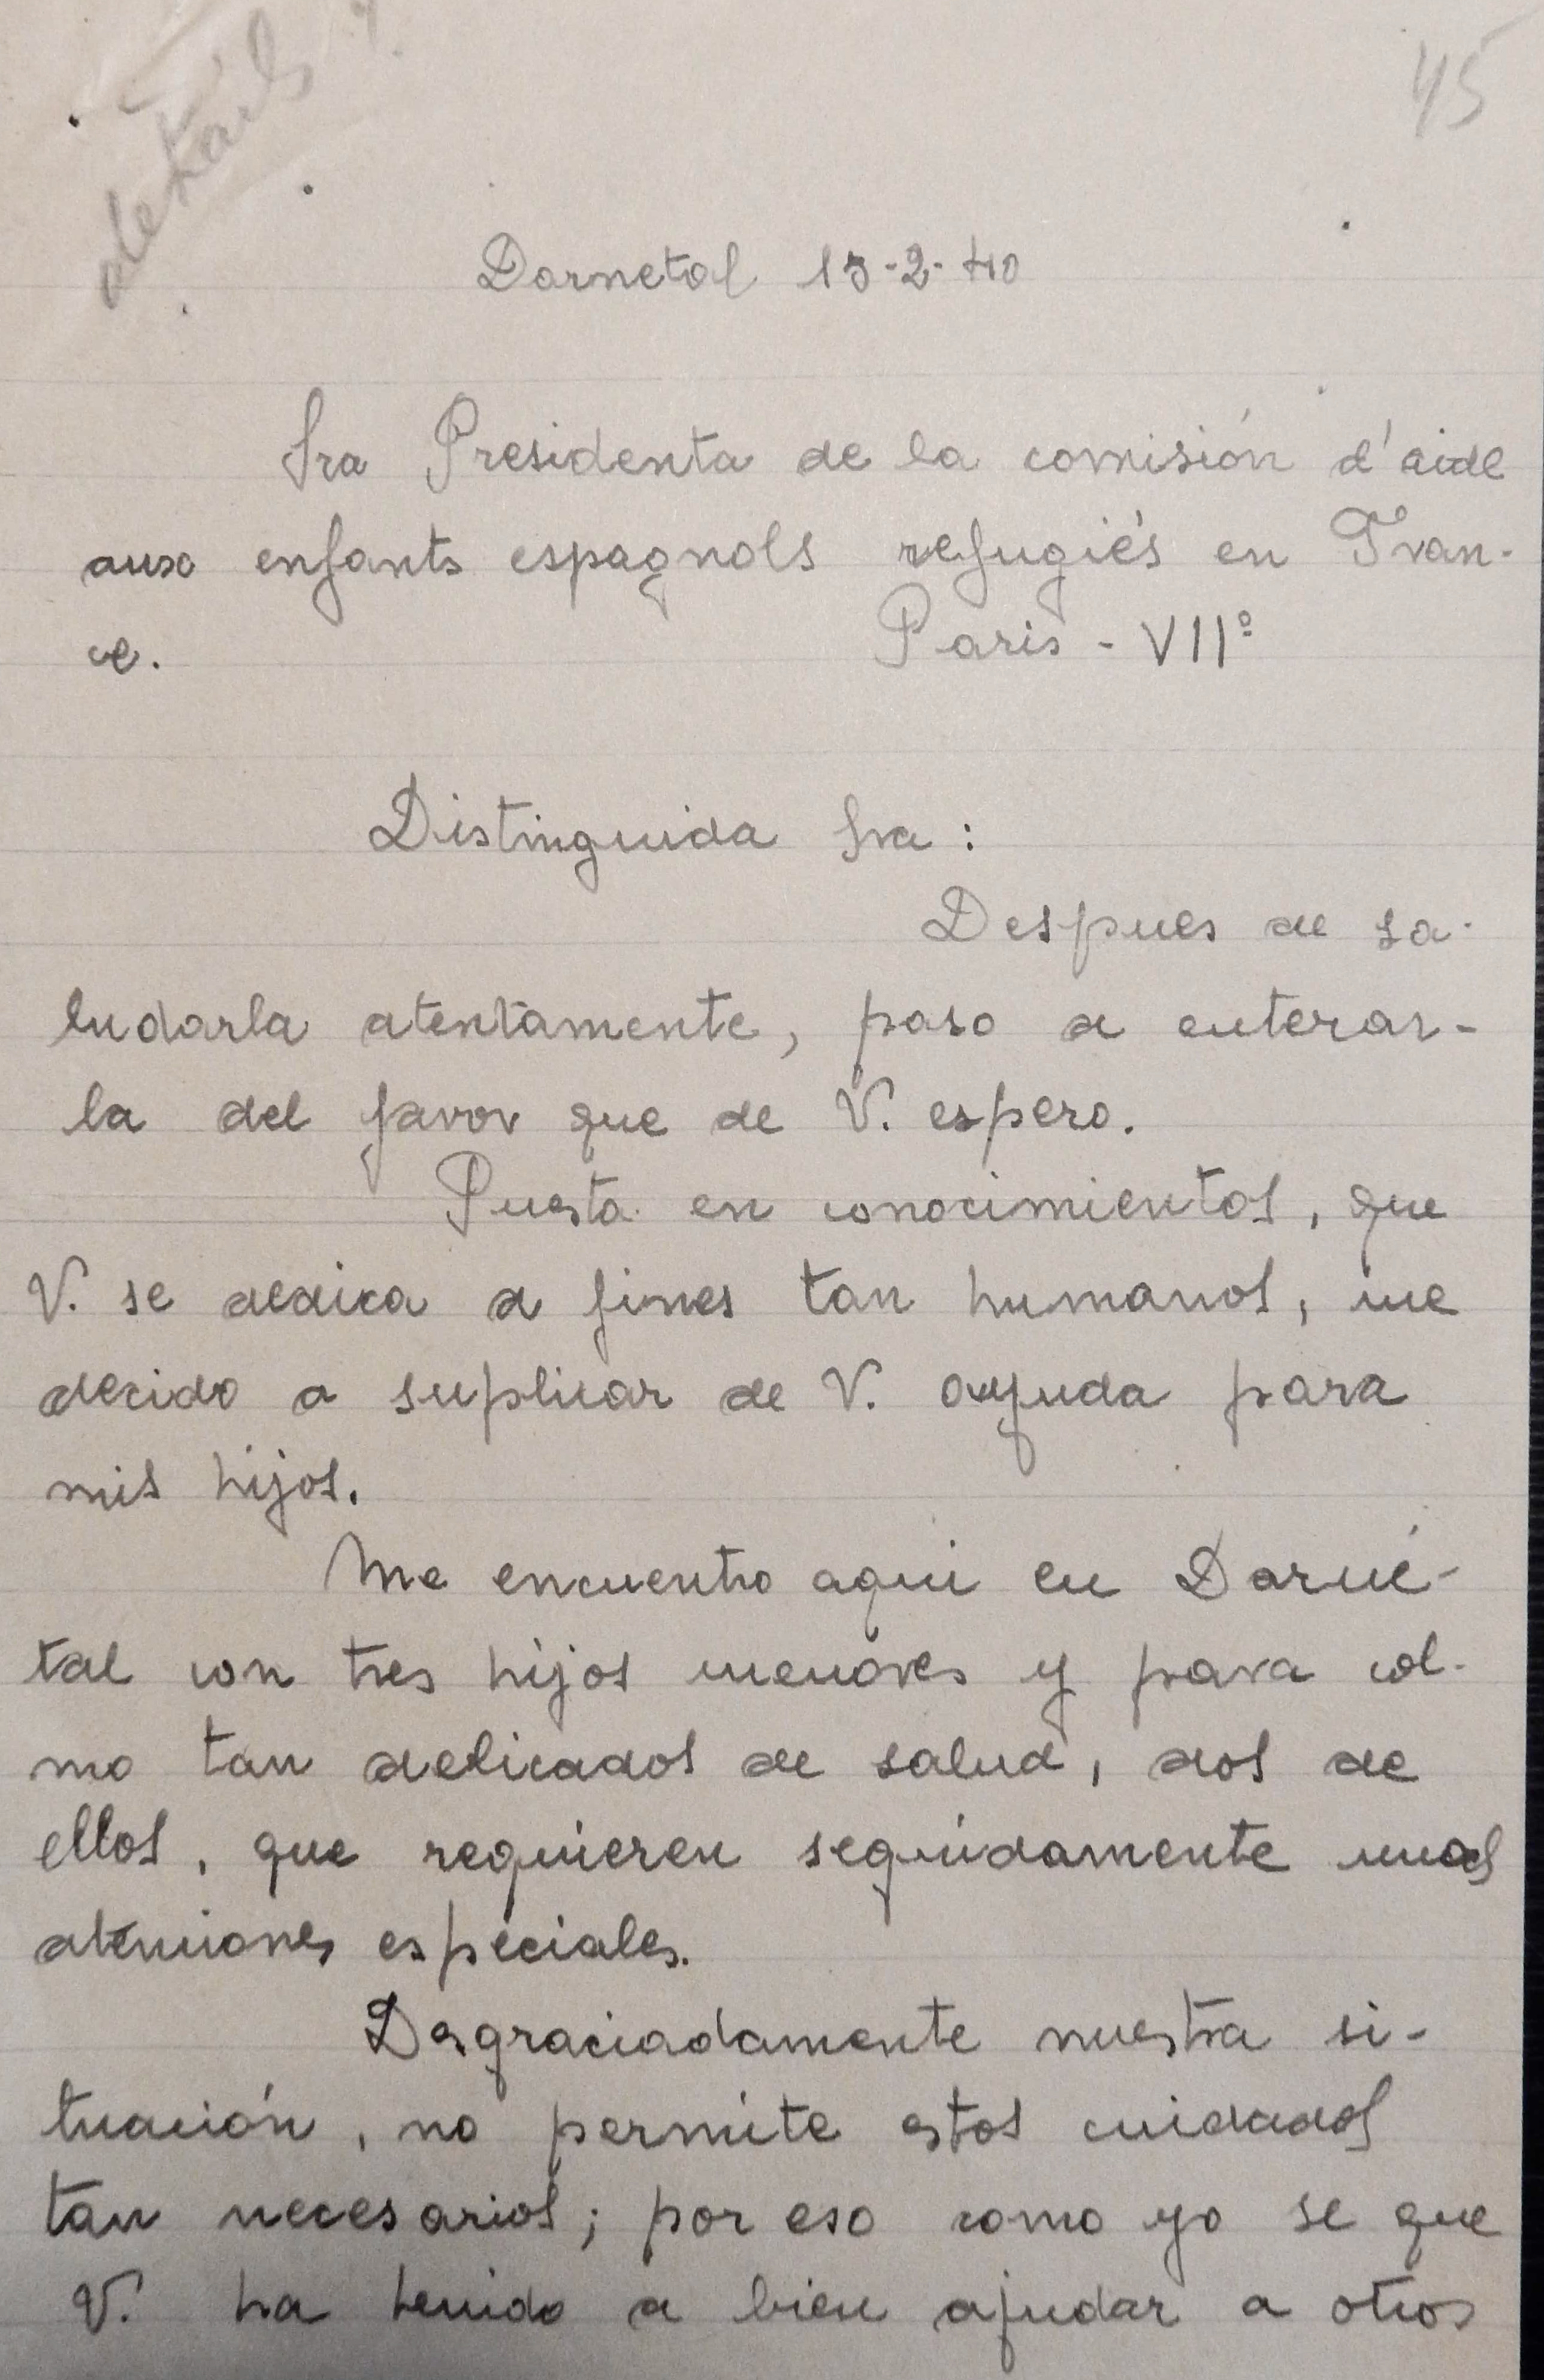 45
details
Darnetal 15-2-40
Sra Presidenta de la comisión d'aide
aux enfants espagnols refugiés en Fran-
ce.
Paris - VIIº
Distinguida Sra:
Despues de sa-
ludarla atentamente, paso a enterar-
la del favor que de V. espero.
Puesta en conocimientos, que
V. se dedica a fines tan humanos, me
decido a suplicar de V. ayuda para
mis hijos.
Me encuentro aqui en Darné-
tal con tres hijos menores y para col-
mo tan delicados de salud, dos de
ellos, que requieren seguidamente unas
atenciones especiales.
Desgraciadamente nuestra si-
tuación, no permite estos cuidados
tan necesarios; por eso como yo se que
V. ha tenido a bien ajudar a otros